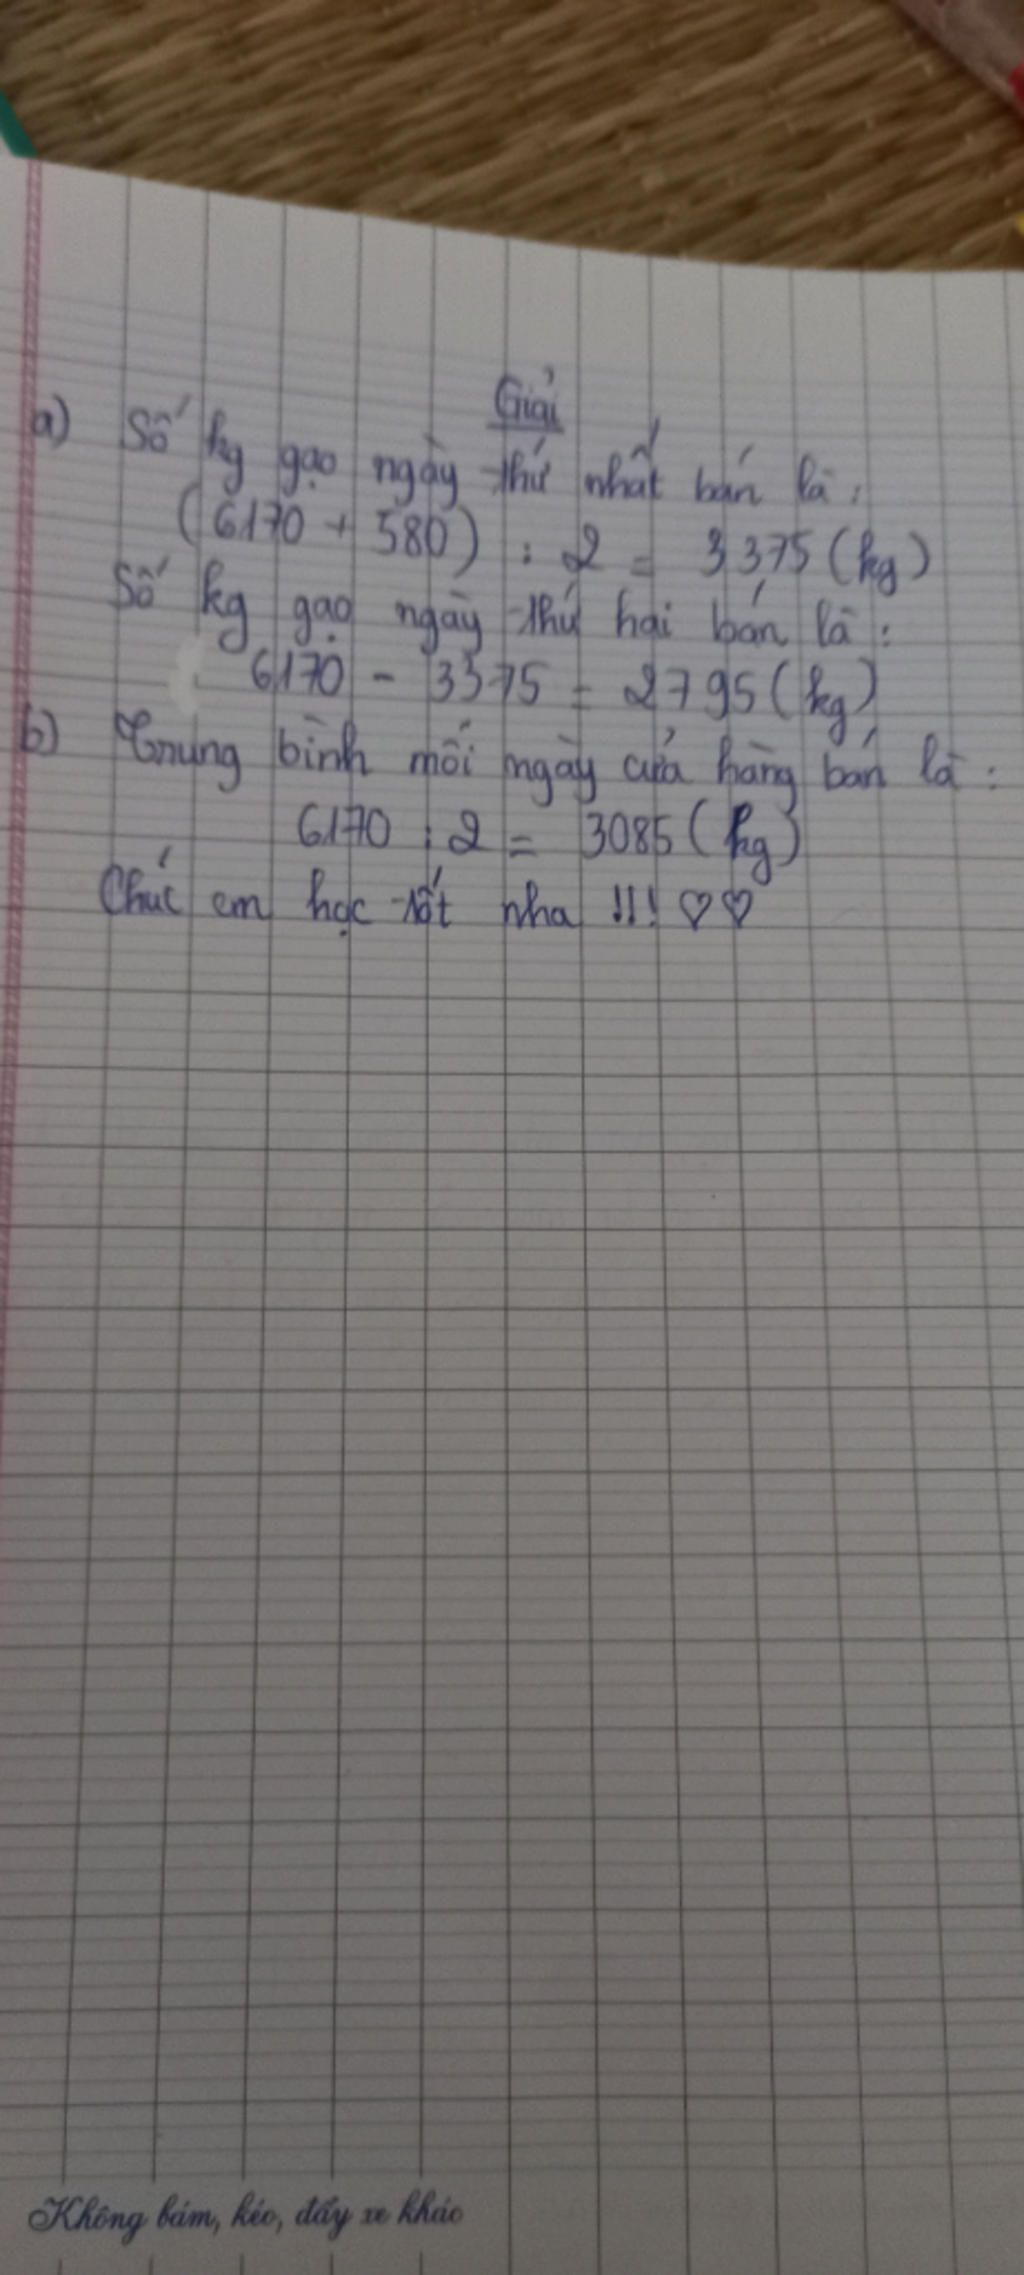 Giải
a) Số kg gạo ngày thứ nhất bán là:
(6170 + 580) : 2 = 3375 (kg)
Số kg gạo ngày thứ hai bán là:
6170 - 3375 = 2795 (kg)
b) Trung bình mỗi ngày cửa hàng bán là:
6170 : 2 = 3085 (kg)
Chúc em học tốt nha !!! ♡♡
Không bám, kéo, đẩy xe khác